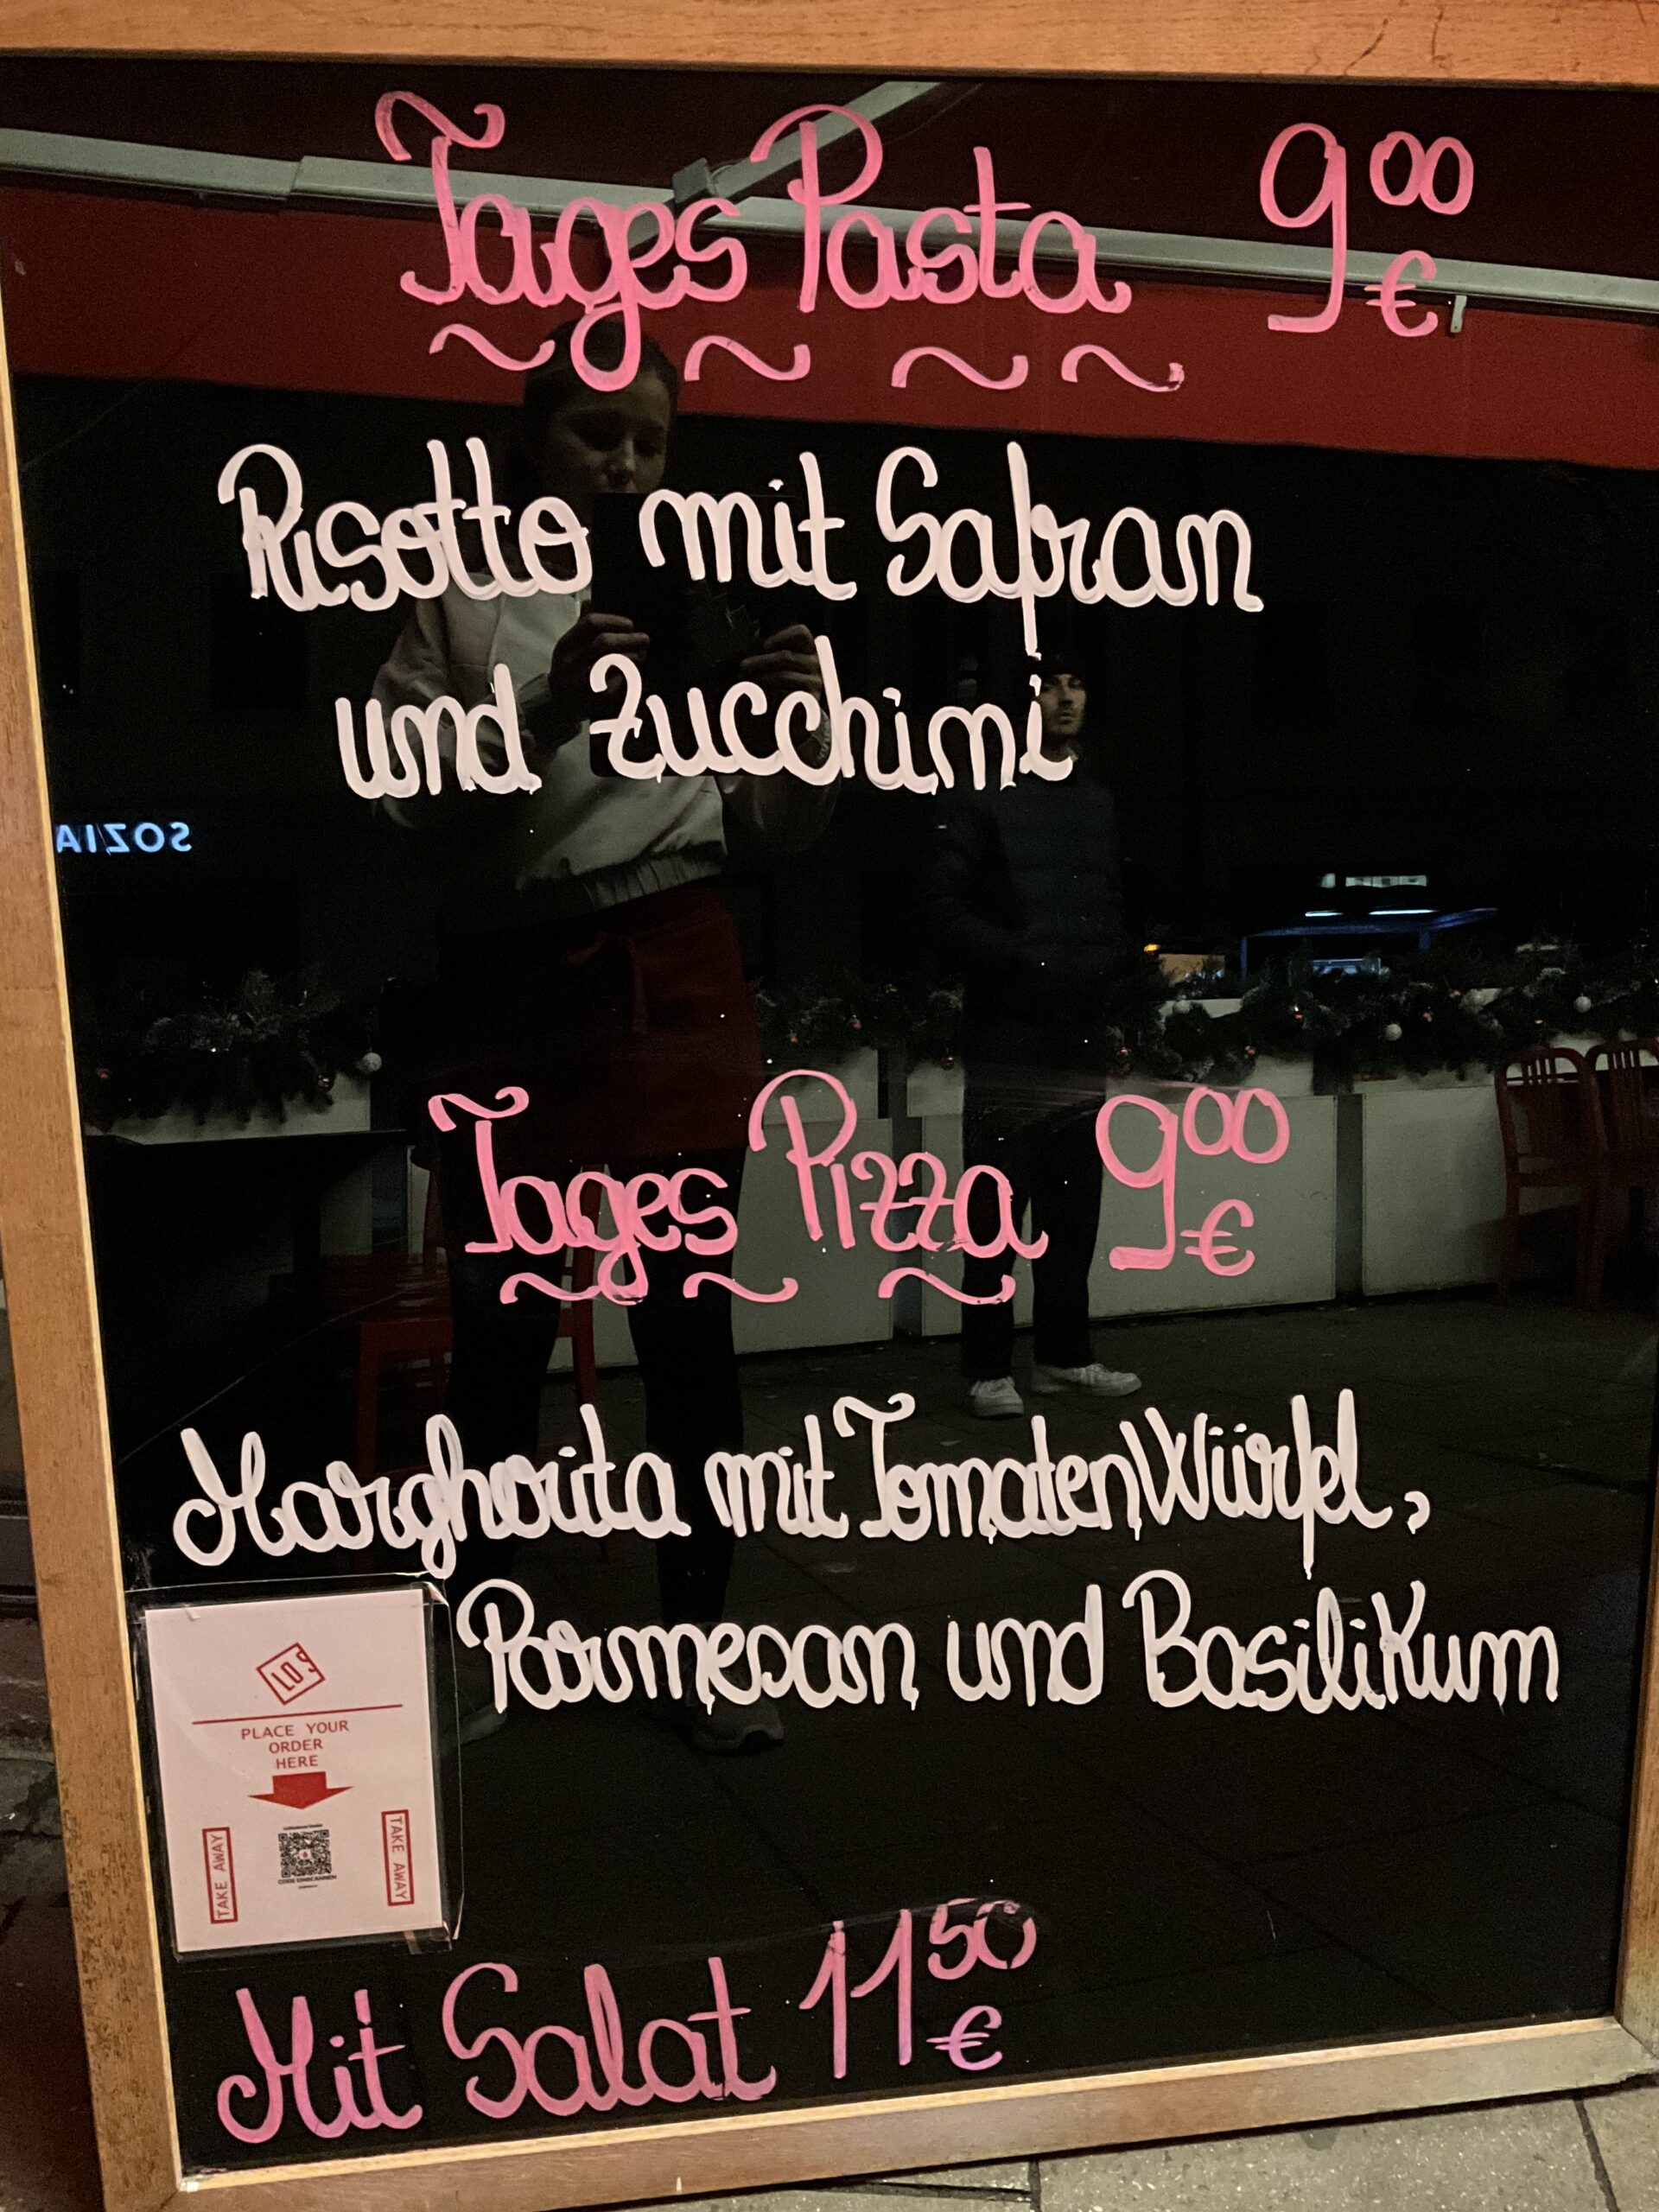 Tages Pasta 9 00 €
Risotto mit Safran
und Zucchini
SOZIA
Tages Pizza 9 00 €
Margherita mit Tomaten Würfel,
Parmesan und Basilikum
LOS
PLACE YOUR
ORDER
HERE
TAKE AWAY
TAKE AWAY
CODE EINSCANNEN
Mit Salat 11 50 €